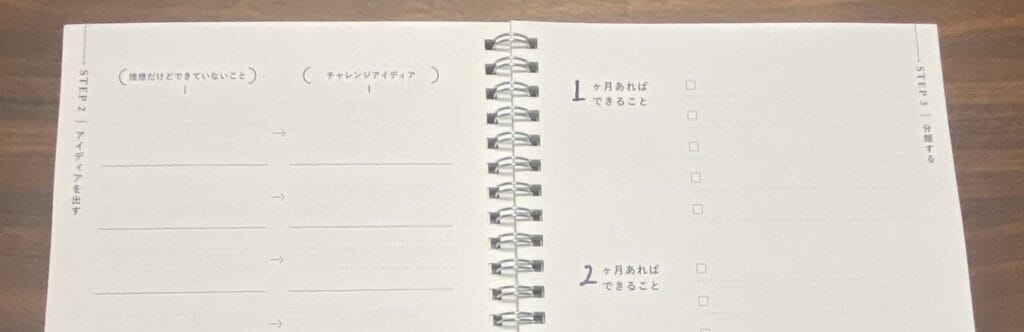 STEP 2 | アイディアを出す
(理想だけどできていないこと)
(チャレンジアイディア)
→
→
→
→
1ヶ月あれば
できること
2ヶ月あれば
できること
STEP 3 | 分類する